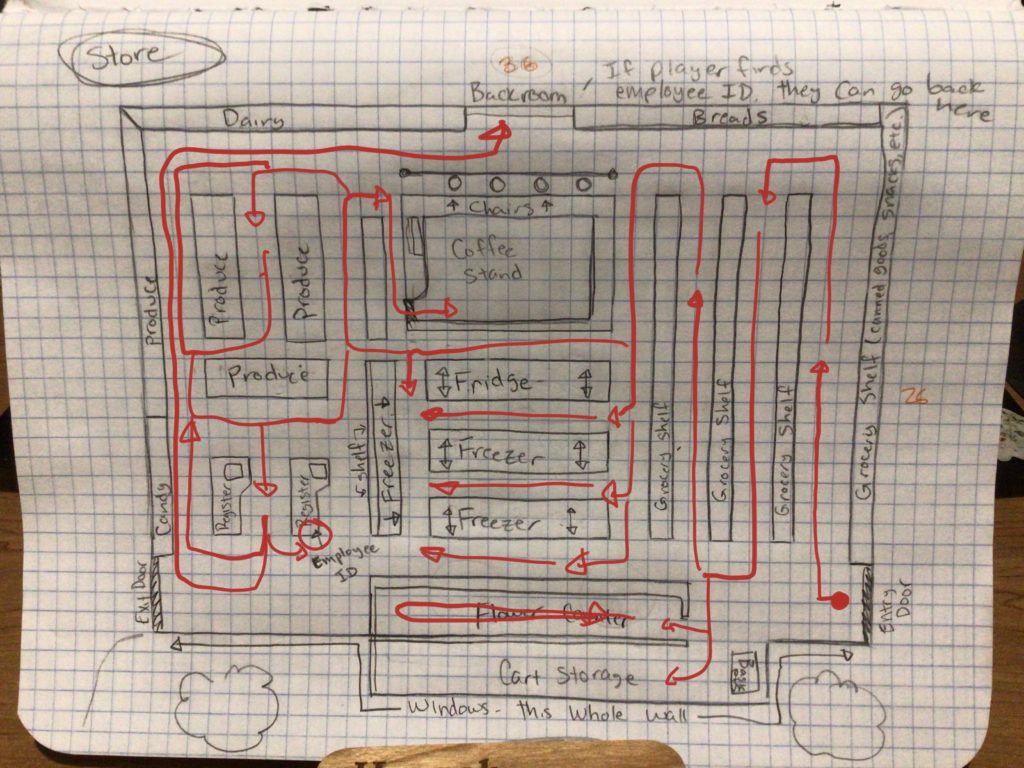 Store
38
If player finds
employee ID, they can go back
here
Backroom
Dairy
Breads
Grocery Shelf (canned goods, snacks, etc.)
↑ Chairs ↑
Coffee
Stand
Produce
Produce
Produce
Produce
Fridge
Freezer
Freezer
Freezer
shelf
Grocery Shelf
Grocery Shelf
Grocery Shelf
26
Candy
Register
Register
Employee
ID
Exit Door
Entry
Door
Flower Counter
Cart Storage
Windows - this whole wall